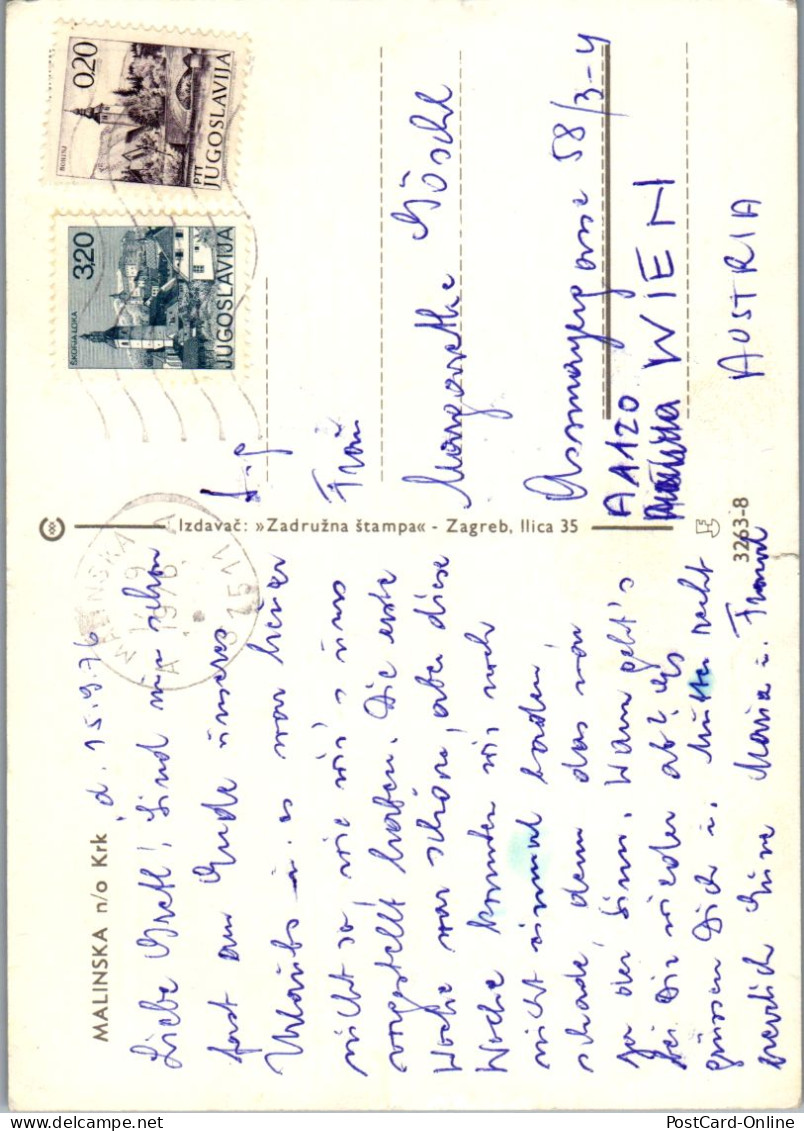 MALINSKA n/o Krk
d. 15.9.76
Liebe Gretl! Sind nun schon
fast am Ende unseres
Urlaubs u. es war heuer
nicht so, wie wir's uns
vorgestellt hatten. Die erste
Woche war schön, aber diese
Woche konnten wir noch
nicht einmal baden,
schade, denn das war
ja der Sinn. Wann geht's
bei Dir wieder ab? Es
grüssen Dich u. Mutter recht
herzlich Eure Maria u. Franz
Izdavač: »Zadružna štampa« - Zagreb, Ilica 35
3263-8
MALINSKA
1976
51511
ŠKOFJA LOKA
3,20
JUGOSLAVIJA
BOHINJ
0,20
PTT
JUGOSLAVIJA
Frau
Margarethe Göschl
Assmayergasse 58/3-4
A 1120 WIEN
AUSTRIA
PostCard-Online